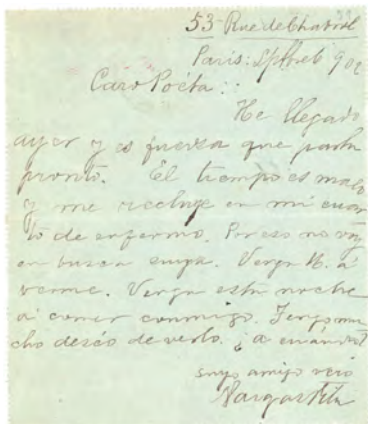 53 Rue de Chabrol
Paris: 902
Caro Poéta:
He llegado
ayer y es fuerza que parta
pronto. El tiempo es malo
y me recluye en mi cuar
to de enfermo. Por eso no voy
en busca suya. Venga U. á
verme. Venga esta noche
á comer conmigo. Tengo mu
cho deséo de verlo.
suyo amigo
Vargas Vila